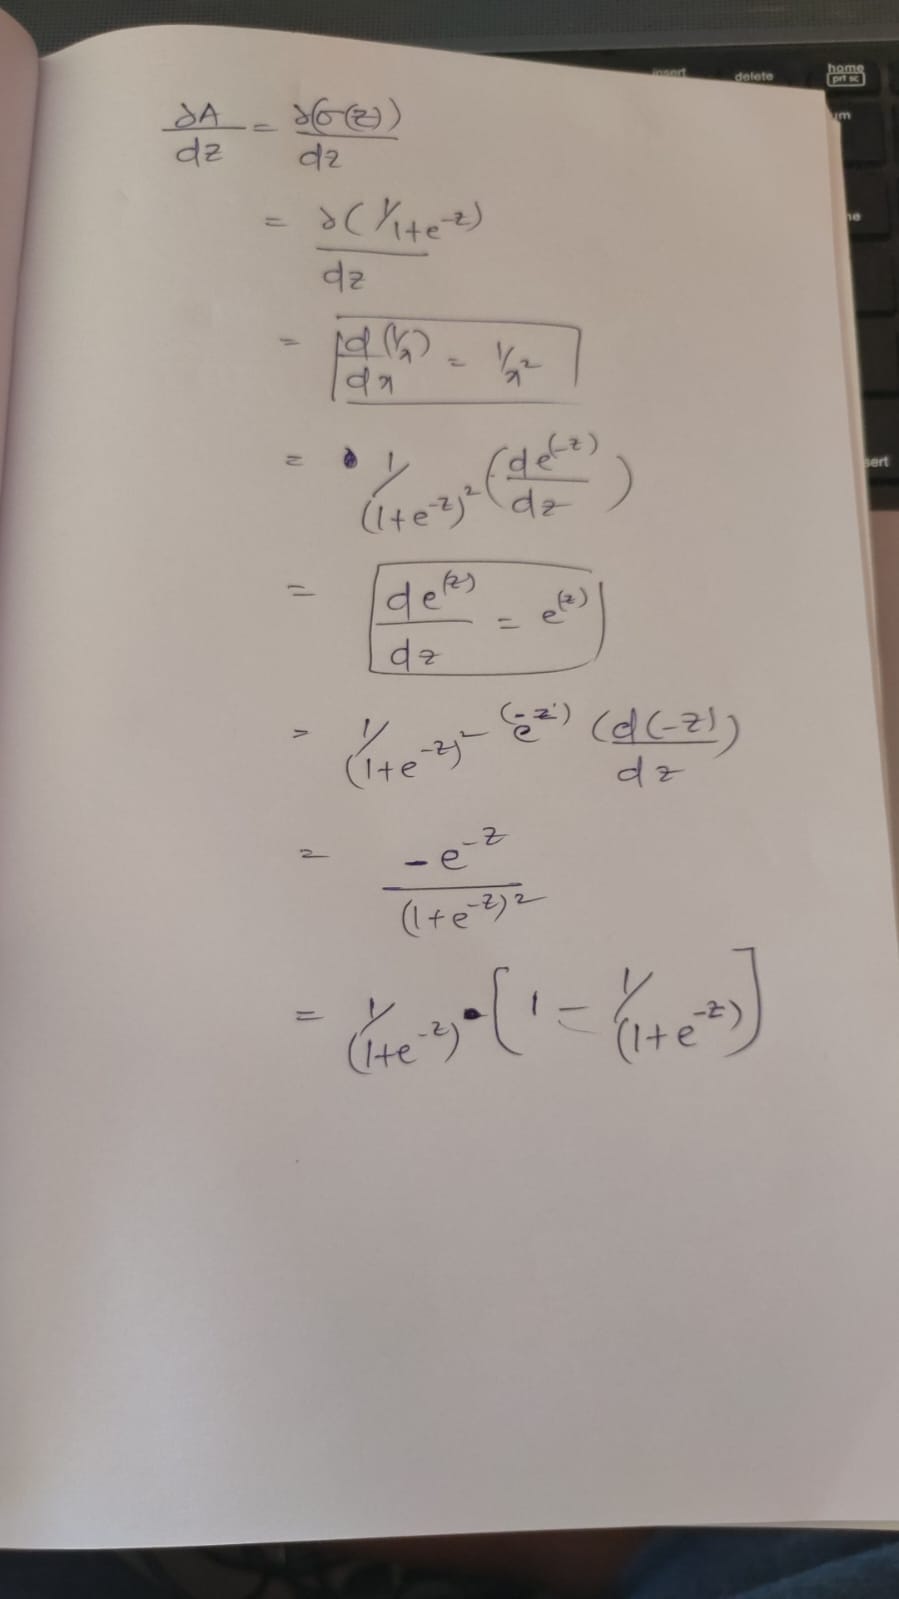 insert delete home
prt sc
um
ne
sert
∂A/dz = ∂(σ(z))/dz
= ∂(1/1+e^-z)/dz
= d(1/x)/dx = 1/x²
= 1/(1+e^-z)² (de^(-z)/dz)
= de^(z)/dz = e^(z)
= 1/(1+e^-z)² e^(-z) (d(-z)/dz)
= -e^-z/(1+e^-z)²
= 1/(1+e^-z) · [1 - 1/(1+e^-z)]